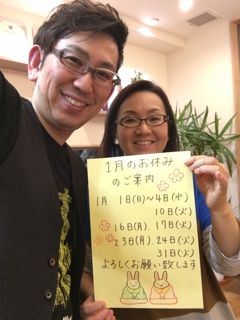 1月のお休み
のご案内
1月 1日(日)～4日(水)
10日(火)
16日(月) 17日(火)
23日(月) 24日(火)
31日(火)
よろしくお願い致します